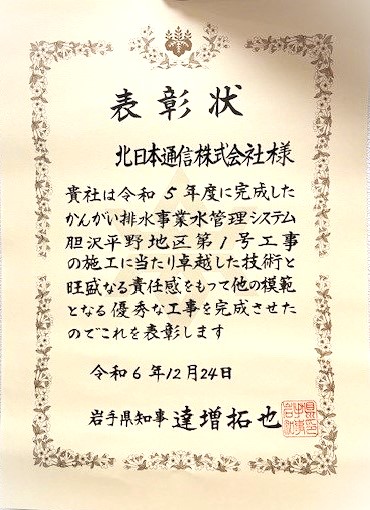 表彰状
北日本通信株式会社様
貴社は令和5年度に完成した
かんがい排水事業水管理システム
胆沢平野地区第1号工事
の施工に当たり卓越した技術と
旺盛なる責任感をもって他の模範
となる優秀な工事を完成させた
のでこれを表彰します
令和6年12月24日
岩手県知事 達増拓也